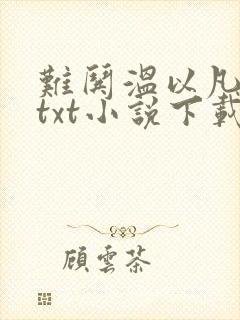 難鬨溫以凡
txt小說下載
顧雲茶